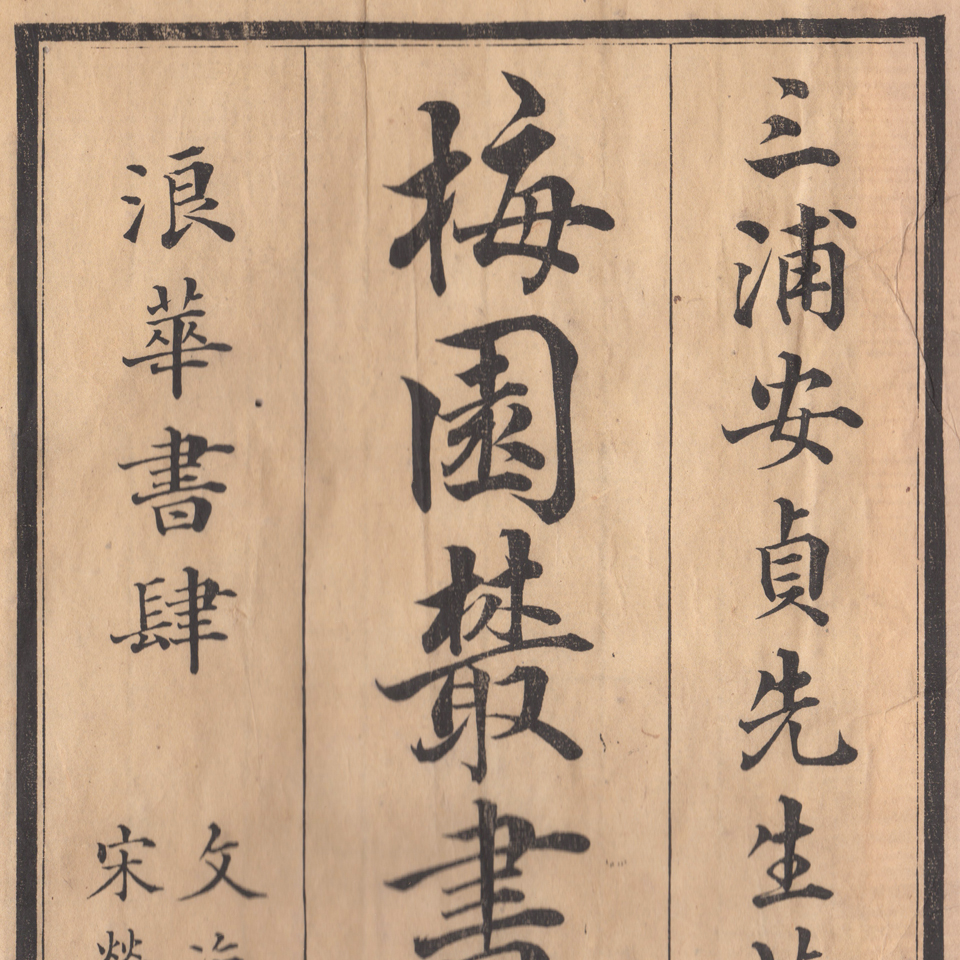 三浦安貞先生
梅園藂書
浪華書肆
文
宋